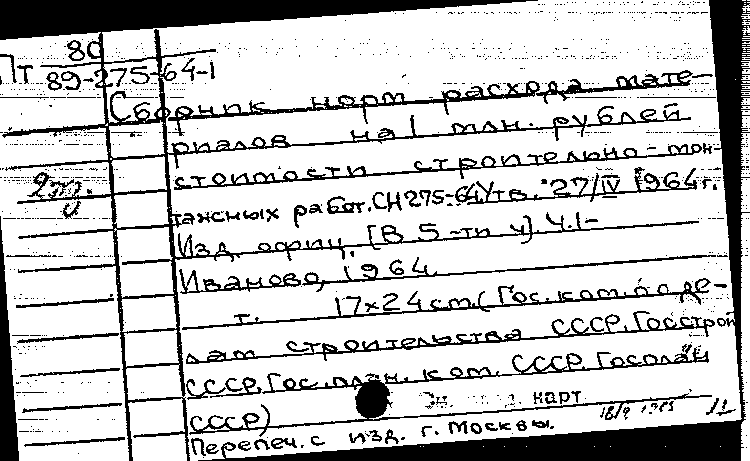 Пт 80
89-275-64-1
Сборник норм расхода мате-
риалов на 1 млн. рублей
стоимости строительно-мон-
2эк.
тажных работ. СН 275-64. Утв. 27/IV 1964 г.
Изд. офиц. [В 5-ти ч]. Ч.1-
Иваново, 1964.
т. 17×24 см. (Гос. ком. по де-
лам строительства СССР. Госстрой
СССР. Гос. план. ком. СССР. Госплан
СССР)
карт. 18/9 1965
Перепеч. с изд. г. Москвы.